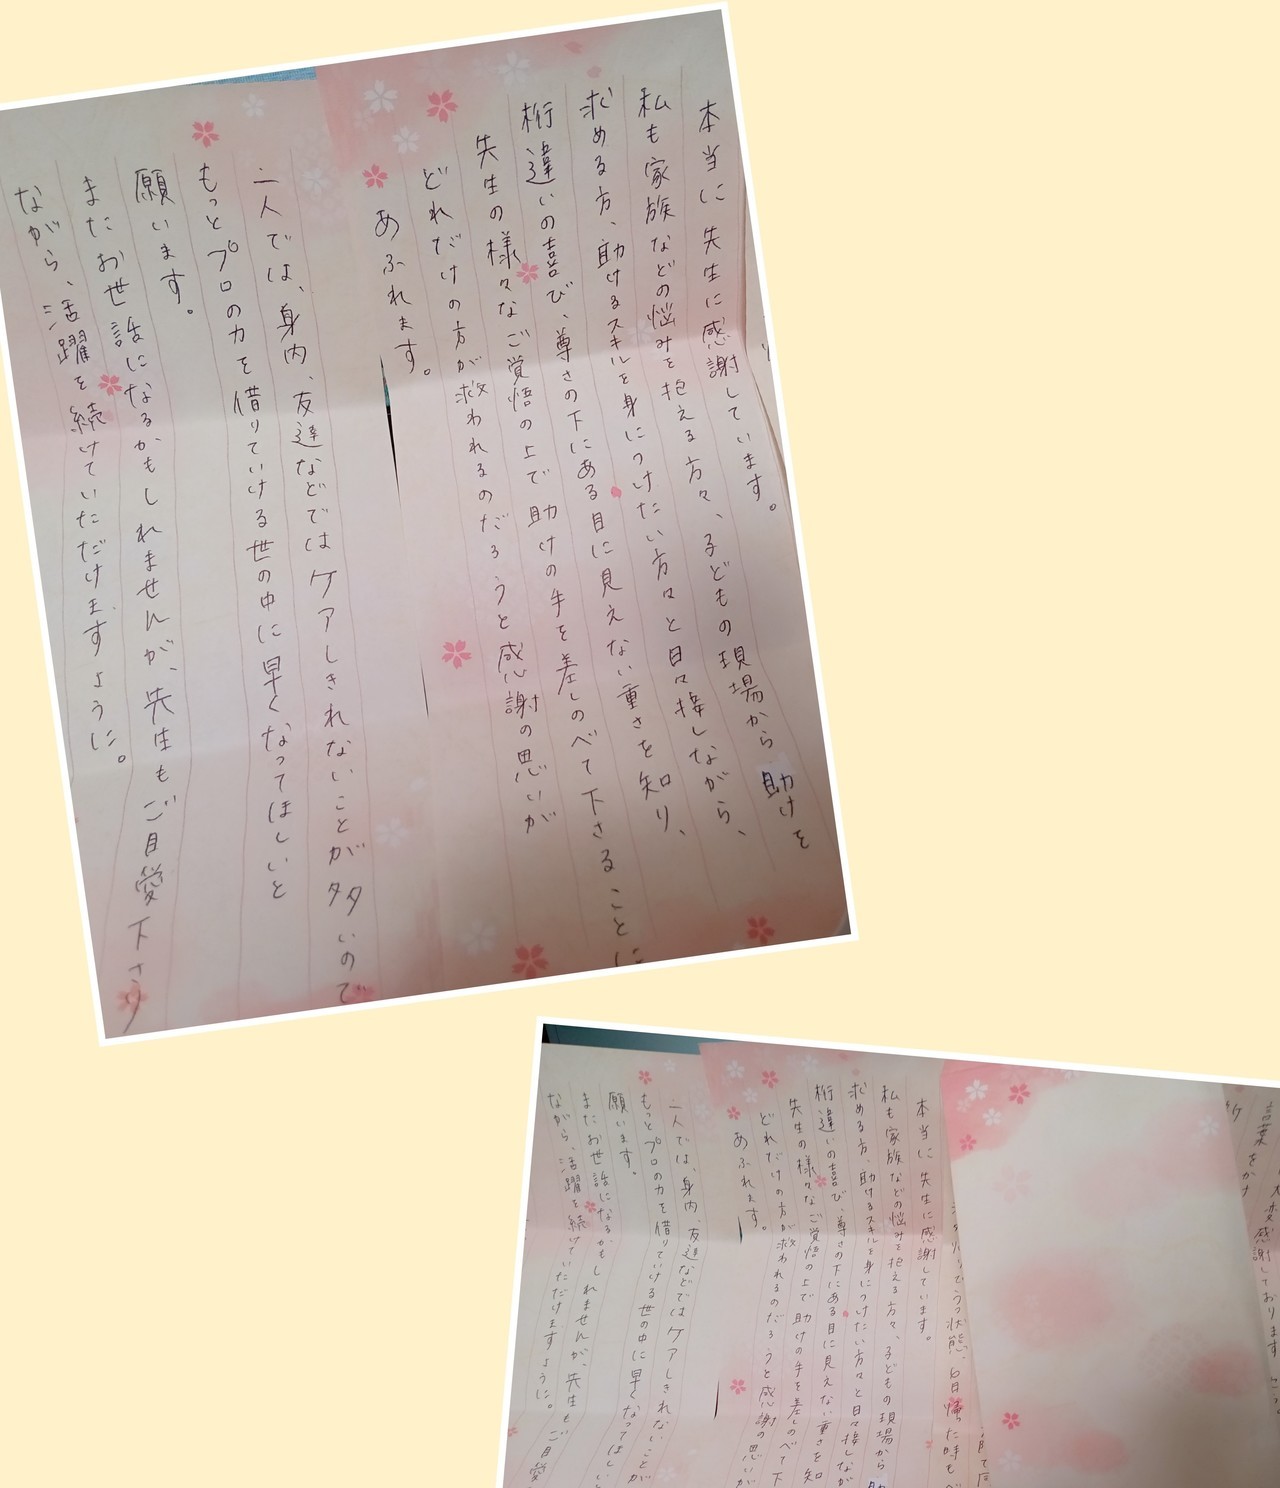 本当に先生に感謝しています。
私も家族などの悩みを抱える方々、子どもの現場から助けを
求める方、助けるスキルを身につけたい方々と日々接しながら、
桁違いの喜び、尊さの下にある目に見えない重さを知り、
先生の様々なご覚悟の上で助けの手を差しのべて下さることに
どれだけの方が救われるのだろうと感謝の思いが
あふれます。
一人では、身内、友達などではケアしきれないことが多いので
もっとプロの力を借りていける世の中に早くなってほしいと
願います。
またお世話になるかもしれませんが、先生もご自愛下さり
ながら、活躍を続けていただけますように。
言葉をかけ
感謝しております
うつ状態、
帰った時も
本当に先生に感謝しています。
私も家族などの悩みを抱える方々、子どもの現場から
求める方、助けるスキルを身につけたい方々と日々接しなが
桁違いの喜び、尊さの下にある目に見えない重さを知
先生の様々なご覚悟の上で助けの手を差しのべて下
どれだけの方が救われるのだろうと感謝の思いが
あふれます。
一人では、身内、友達などではケアしきれないことが
もっとプロの力を借りていける世の中に早くなってほしいと
願います。
またお世話になるかもしれませんが、先生もご自愛
ながら、活躍を続けていただけますように。